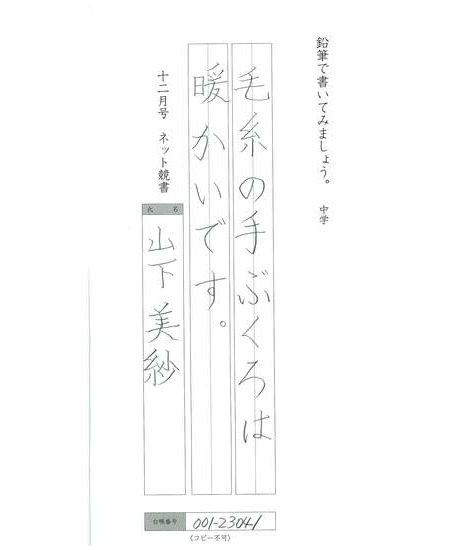 鉛筆で書いてみましょう。 中学
毛糸の手ぶくろは
暖かいです。
十二月号 ネット競書
氏 名
山下美紗
台帳番号 001-23041
(コピー不可)